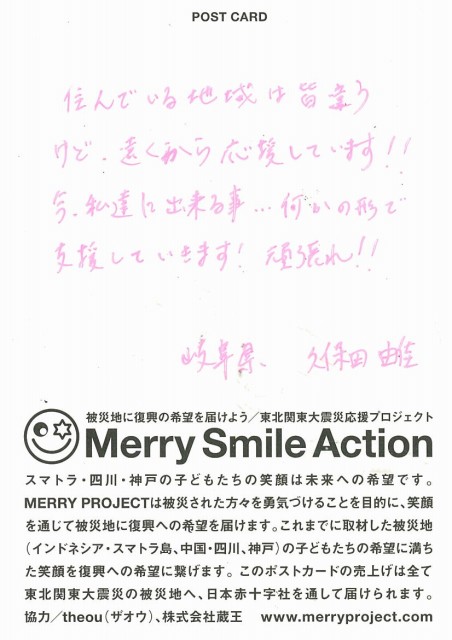 POST CARD
住んでいる地域は皆違う
けど、遠くから応援しています!!
今、私達に出来る事…何かの形で
支援していきます! 頑張れ!!
岐阜県、 久保田 由佳
被災地に復興の希望を届けよう／東北関東大震災応援プロジェクト
Merry Smile Action
スマトラ・四川・神戸の子どもたちの笑顔は未来への希望です。
MERRY PROJECTは被災された方々を勇気づけることを目的に、笑顔
を通じて被災地に復興への希望を届けます。これまでに取材した被災地
（インドネシア・スマトラ島、中国・四川、神戸）の子どもたちの希望に満ち
た笑顔を復興への希望に繋げます。このポストカードの売上げは全て
東北関東大震災の被災地へ、日本赤十字社を通して届けられます。
協力／theou（ザオウ）、株式会社蔵王 www.merryproject.com